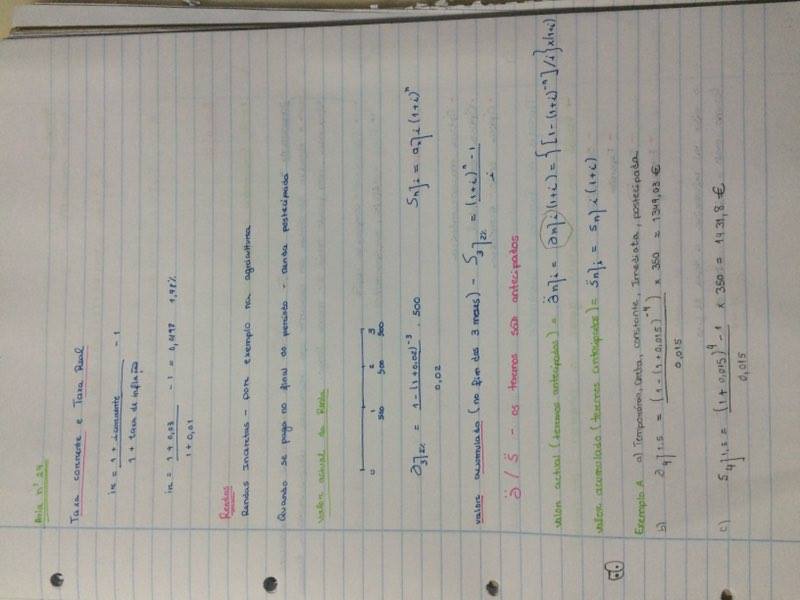 Aula nº 24
Taxa corrente e Taxa Real
ir = (1 + i corrente) / (1 + taxa de inflação) - 1
ir = (1 + 0,03) / (1 + 0,01) - 1 = 0,0198 1,98%
Rendas
Rendas Incertas - por exemplo na agricultura
Quando se paga no final do período - renda postecipada
valor actual da Renda
0 1 2 3
500 500 500
a3⌉2% = (1-(1+0,02)^-3) / 0,02 . 500 Sn⌉i = an⌉i (1+i)^n
valor acumulado (no fim dos 3 meses) - S3⌉2% = ((1+i)^n - 1) / i
ä / s̈ - os termos são antecipados
valor actual (termos antecipados) = än⌉i = an⌉i (1+i) = {[1-(1+i)^-n]/i}x(1+i)
valor acumulado (termos antecipados) = s̈n⌉i = sn⌉i (1+i)
Exemplo A a) Temporária, certa, constante, Imediata, postecipada
b) a4⌉1,5 = (1-(1+0,015)^-4) / 0,015 x 350 = 1349,03 €
c) S4⌉1,5 = ((1+0,015)^4 - 1) / 0,015 x 350 = 1431,8 €